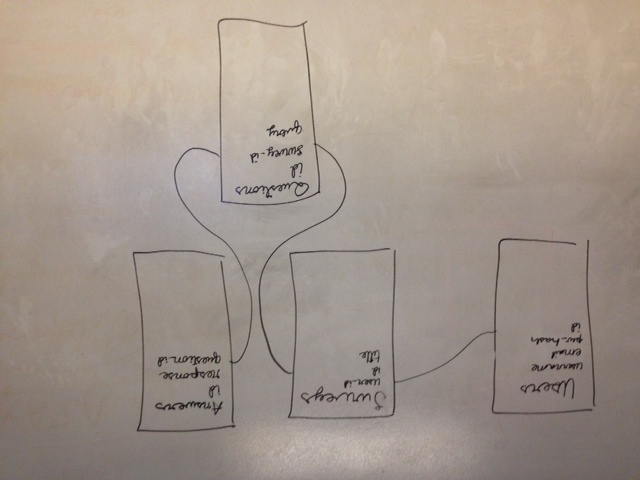 Users
username
email
pw-hash
id
Surveys
user-id
id
title
Answers
id
response
question id
Questions
id
survey-id
query